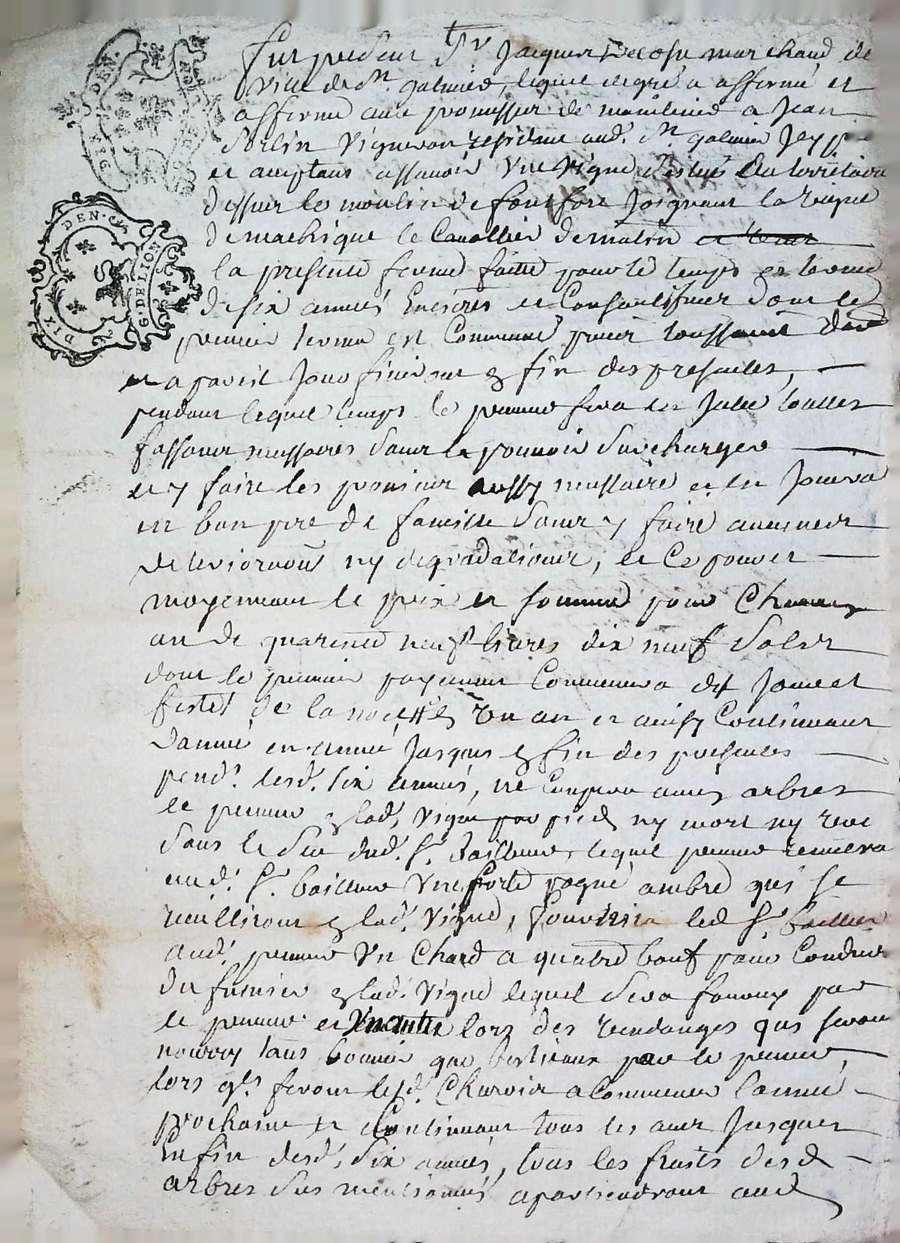 DIX DEN.
G. DE LION
Fut present Sr Jacques marchand de
ville de St galmier, lequel de gré a affermé et
afferme avec promesse de maintenir a Jean
vigneron residant aud. St galmier
et acceptant assavoir une vigne située au territoire
dessus les moulin de fontfort joignant la vigne
de le Cavallier de matin
la presente ferme faitte pour le temps et terme
de six années entieres et consecutives dont le
premier terme est commencé
et a pareil jour finiront a fin des presentes,
pendant lequel temps le preneur fera en icelle toutes
fassons necessaires sans le pouvoir surcharger
et y faire les provins aussy necessaire et en jouira
en bon pere de famille sans y faire aucunes
deteriorations ny degradations, et ce pour et
moyennant le prix et somme pour chacun
an de quarente neuf livres dix neuf sols
dont le premier payement commencera
festes de la noel un an et ainsy continuant
d'année en année jusques a fin des presentes
pend. lesd. six années, ne coupera aucuns arbres
le preneur a lad. vigne par pied ny mort ny vif
sans le sceu dud. Sr Bailleur, lequel preneur
aud. Sr bailleur une
cuilliront a lad. vigne, fournira led. Sr bailleur
aud. preneur un chard a quatre beuf pour conduire
du fumier a lad. vigne lequel sera fourny par
le preneur et lors des vendanges qui seront
nourry tans bouvier que bestieaux par le preneur,
lors qls feront lesd. charrois a commencer l'année
prochaine et continuant tous les ans jusques
en fin desd. six années, tous les fruits desd
arbres sus mentionnés apartiendront aud